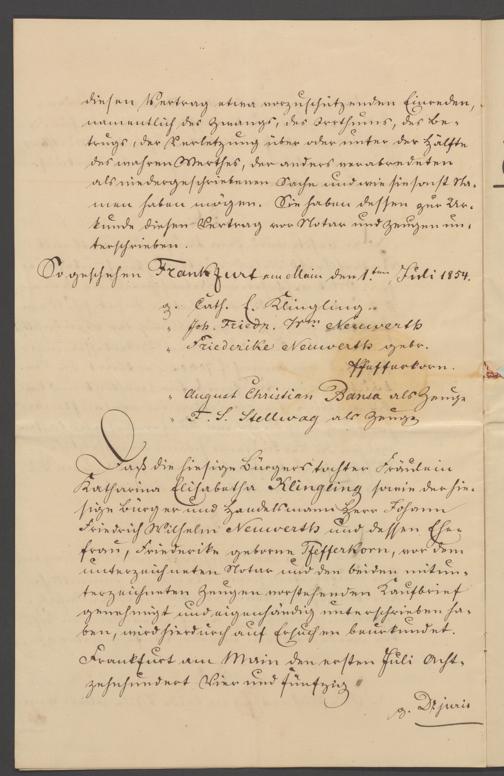 diesen Vertrag etwa vorzuschützenden Einreden,
namentlich des Zwangs, des Irrthums, des Be-
trugs, der Verletzung über oder unter der Hälfte
des wahren Werthes, der anders verabredeten
als niedergeschriebenen Sache und wie sie sonst Na-
men haben mögen. Sie haben dessen zur Ur-
kunde diesen Vertrag vor Notar und Zeugen un-
terschrieben.
So geschehen Frankfurt am Main den 1.ten Juli 1854.
g. Cath. E. Klingling.
" Joh. Friedr. Wm Neuwerth
" Friederike Neuwerth gebr.
Pfefferkorn.
" August Christian Bansa als Zeuge
" F. S. Stellwag als Zeuge
Daß die hiesige Bürgerstochter Fräulein
Katharina Elisabetha Klingling sowie der hie-
sige Bürger und Handelsmann Herr Johann
Friedrich Wilhelm Neuwerth und dessen Ehe-
frau, Friederike geborne Pfefferkorn, vor dem
unterzeichneten Notar und den beiden mitun-
terzeichneten Zeugen vorstehenden Kaufbrief
genehmigt und eigenhändig unterschrieben ha-
ben, wird hierdurch auf Ersuchen beurkundet.
Frankfurt am Main den ersten Juli Acht-
zehnhundert Vier und fünfzig
g. Dr juris